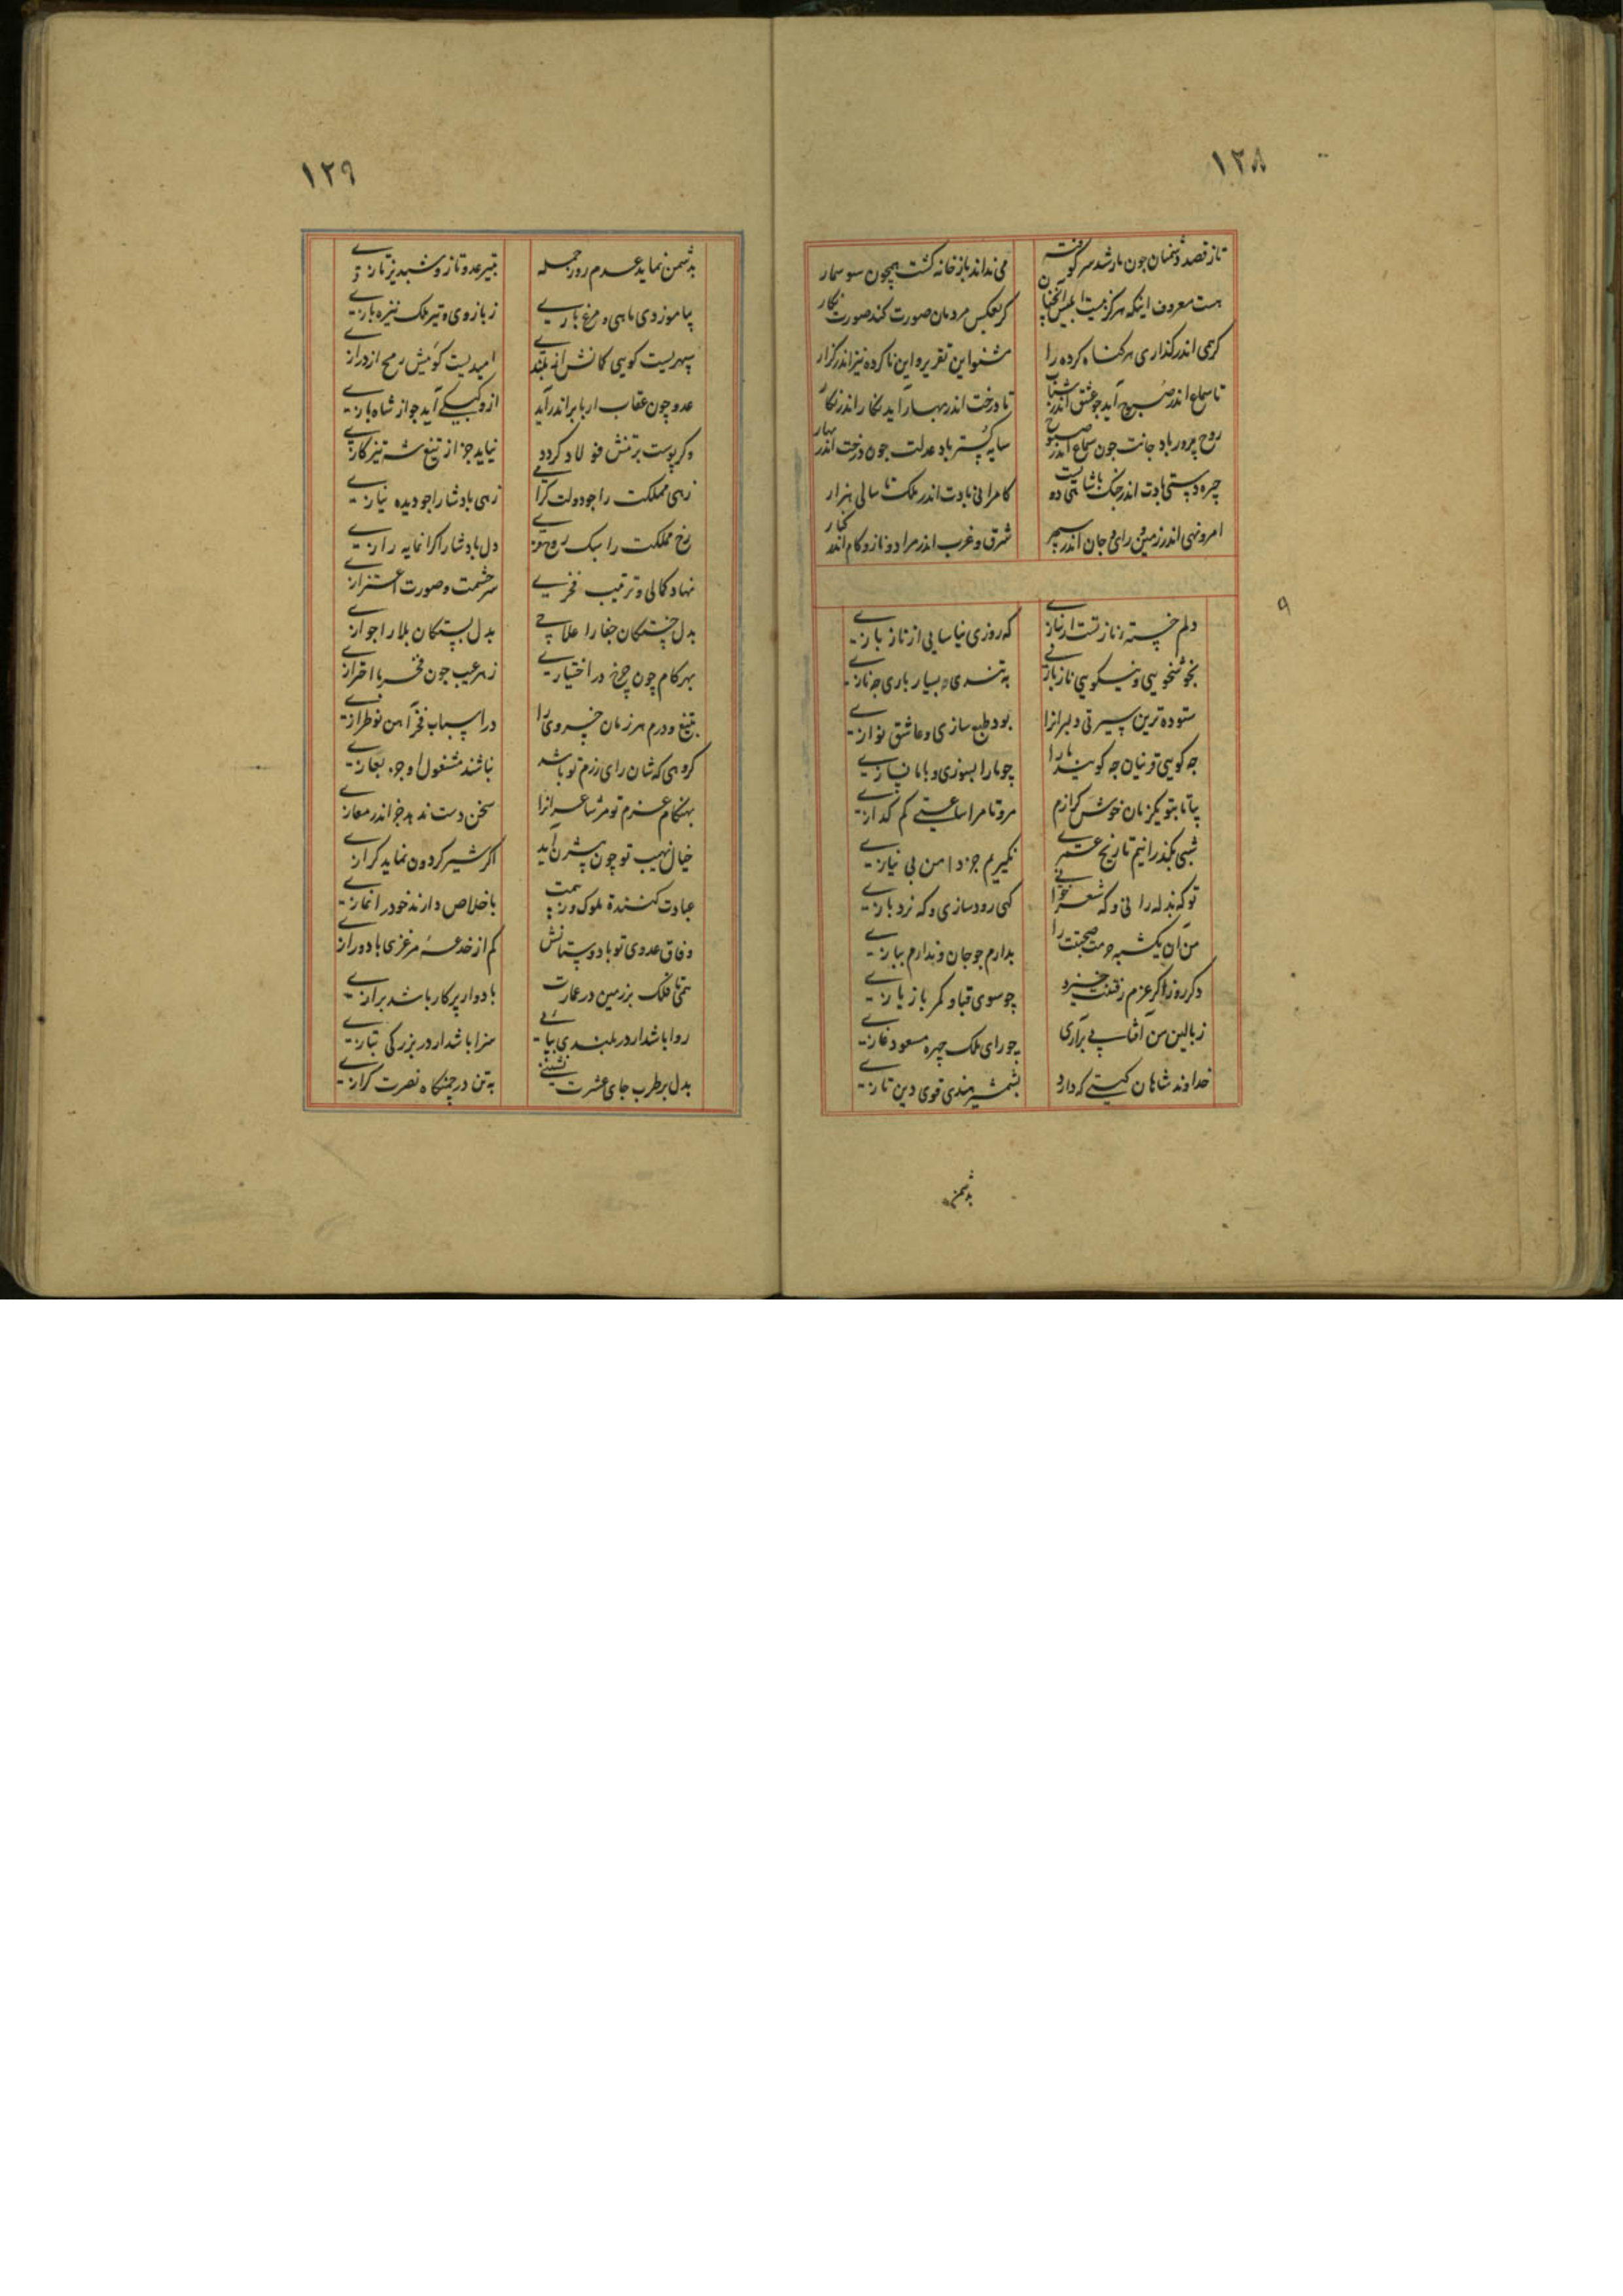 ۱۲۸
تا ز قصد دشمنان چون مار شد سر کوفته
می نداند باز خانه گشت همچون سوسمار
هست معروف اینکه هرگز نیست ابلیس آنچنان
کز بعکس مردمان صورت کند صورت نگار
کر همی اندر گذاری هر گناه کرده را
مشنو این تقریر و این ناکرده نیز اندر گذار
تا سماع اندر صبوح آید چو عشق اندر شباب
تا درخت اندر بهار آید نگار اندر نگار
روح پرور باد جانت چون سماع اندر صبوح
سایه گستر باد عدلت چون درخت اندر بهار
چیره دستی بادت اندر جنگ
کامرانی بادت اندر ملک تا سالی هزار
امر و نهی اندر زمین و رای و جان اندر سپهر
شرق و غرب اندر مراد و ناز و کام اندر کنار
۹
دلم خسته ناز تست ار نیازی
که روزی نیاسایی از ناز بازی
بخوشخویی و نیکویی ناز
به تندی و بسیار باری چه نازی
ستوده ترین سیرتی دلبرانرا
بود طبع سازی و عاشق نوازی
چه گویی تو نیان چه گویند ما را
چو ما را بسوزی و با ما نسازی
بیا تا بتو یکزمان خوش گرازم
مرو تا مرا ساعتی کم گدازی
شبی بگذرانیم تاریخ عمری
نگیریم جز دامن بی نیازی
تو که بذله رانی و که شعر خوانی
گهی رود سازی و گه نرد بازی
من آن یکشبه حرمت صحبتت را
بدارم چو جان و ندارم ببازی
دگر روز اگر عزم رفتنت خیزد
چو سوی قبا و کمر باز یازی
ز بالین من آفتابی برآری
چو رای ملک چهره مسعود غازی
خداوند شاهان گیتی که دارد
بشمشیر هندی قوی دین تازی
بدشمن
۱۲۹
بدشمن نماید عدم روز حمله
بتیر عدو تاز و شبدیز تازی
بیاموز دی ماهی و مرغ باری
ز بازوی و تیر ملک نیزه بازی
سپهریست گویی کمانش از بلندی
امیدیست گوئیش رمح از درازی
عدو چون عقاب ار بابر اندر آید
ازو کبکی آید چو از شاه بازی
وگر پوست بر تنش فولاد گردد
نیاید جز از تیغ شه تیز کاری
زهی مملکت را چو دولت گرامی
زهی بادشا را چو دیده نیازی
رخ مملکت را سبک روح نوری
دل بادشا را گرانمایه رازی
نهاد کمالی و ترتیب فخری
سر حشمت و صورت اعتزازی
بدل خستگان جفا را علاجی
بدل بستگان بلا را جوازی
بهر کام چون چرخ در اختیاری
ز هر عیب چون فخر با احترازی
بتیغ و درم هر زمان خسروی را
در اسباب فخر آهن نو طرازی
گروهی که شان رای رزم تو باشد
نباشند مشغول او جز بغازی
بهنگام عزم تو مر شاعرانرا
سخن دست ندهد جز اندر مغازی
خیال نهیب تو چون پیشش آید
اگر شیر گردون نماید گرازی
عبادت کننده ملوک و زهمت
باخلاص دارند خود را نمازی
وفاق عدوی تو با دوستانش
کم از خدعه مرغزی با دو رازی
همی تا فلک بر زمین در عمارت
با دوار پرگار باشد برازی
روا باشد ار در بلندی بپایی
سزا باشد ار در بزرگی بنازی
بدل بر طرب جای عشرت نشینی
به تن در چمنگاه نصرت گرازی